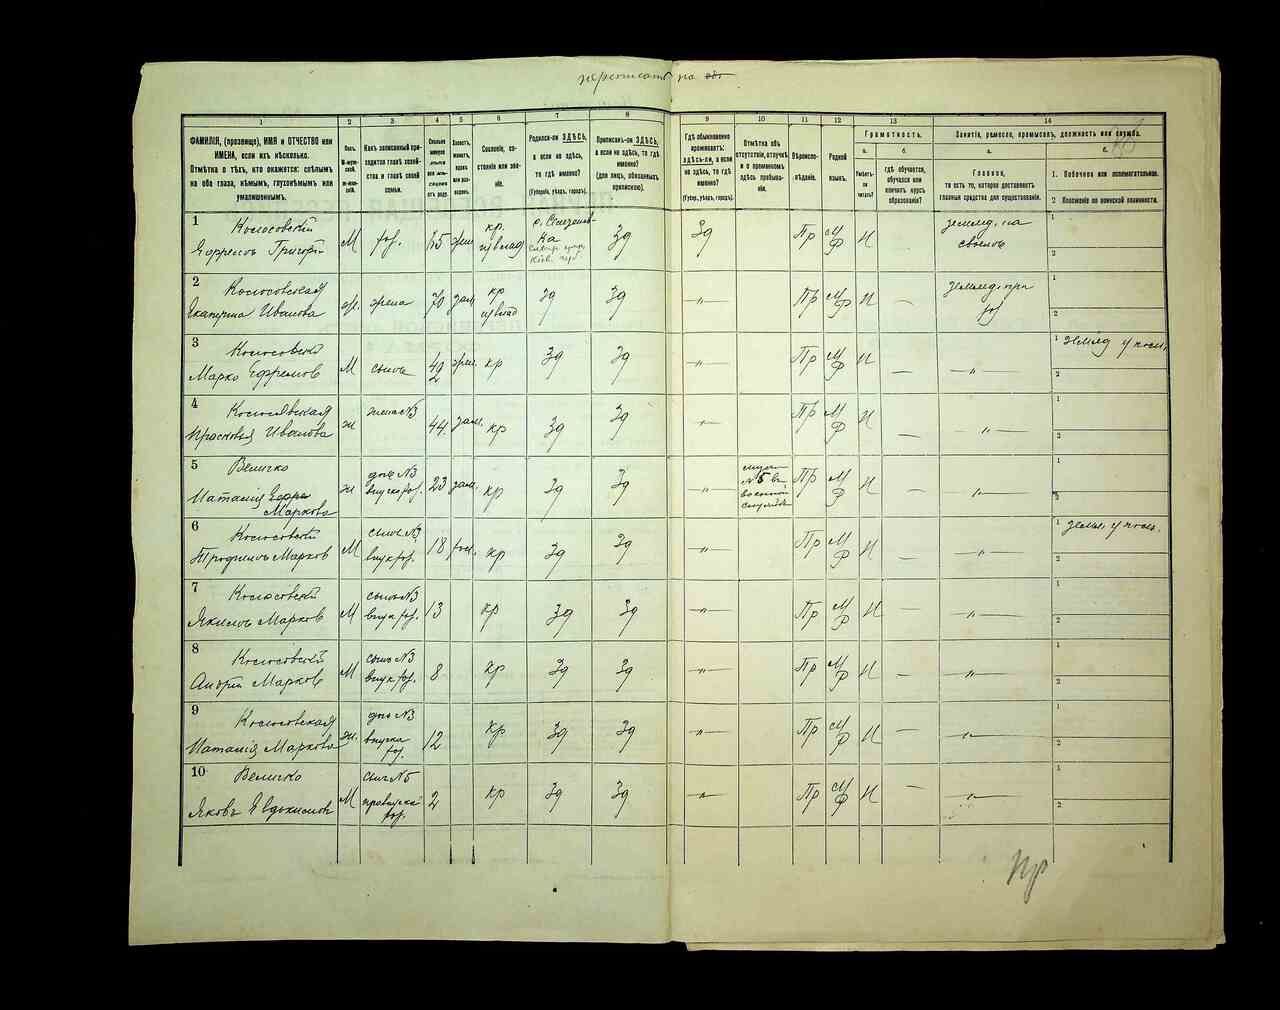 переписать на
1 2 3 4 5 6 7 8 9 10 11 12 13 14
ФАМИЛІЯ, (прозвище), ИМЯ и ОТЧЕСТВО или
ИМЕНА, если ихъ нѣсколько.
Отмѣтка о тѣхъ, кто окажется: слѣпымъ
на оба глаза, нѣмымъ, глухонѣмымъ или
умалишеннымъ.
Полъ.
М-мужской.
Ж-женскій.
Какъ записанный приходится главѣ хозяйства и главѣ своей семьи.
Сколько минуло лѣтъ или мѣсяцевъ отъ роду.
Холостъ, женатъ, вдовъ или разведенъ.
Сословіе, состояніе или званіе.
Родился-ли ЗДѢСЬ,
а если не здѣсь,
то гдѣ именно?
(Губернія, уѣздъ, городъ).
Приписанъ-ли ЗДѢСЬ,
а если не здѣсь, то гдѣ
именно?
(для лицъ, обязанныхъ
припискою).
Гдѣ обыкновенно
проживаетъ:
здѣсь-ли, а если
не здѣсь, то гдѣ
именно?
(Губер., уѣздъ, городъ).
Отмѣтка объ
отсутствіи, отлучкѣ
и о временномъ
здѣсь пребываніи.
Вѣроисповѣданіе.
Родной
языкъ.
Грамотность.
а. б.
Умѣетъ-ли
читать?
гдѣ обучается,
обучался или
кончилъ курсъ
образованія?
Занятіе, ремесло, промыселъ, должность или служба.
а.
Главное,
то есть то, которое доставляетъ
главныя средства для существованія.
с.
1. Побочное или вспомогательное.
2 Положеніе по воинской повинности.
1 Колосовскій
Ефремъ Григор М гоз. 65 жен кр. изъ влад с. Степанов-
ка
Кіев. губ Зд Зд Пр М Р Н землед. на
своемъ 1
2
2 Колосовская
Екатерина Иванова ж. жена 70 зам кр изъ влад Зд Зд —"— Пр М Р Н — землед. при
гоз 1
2
3 Колосовскій
Марко Ефремовъ М сынъ 49
2 жен. кр Зд Зд —"— Пр М Р Н — —"— 1 землед у хозя.
2
4 Колосовская
Прасковья Иванова ж жена №3 44 зам. кр Зд Зд —"— Пр М Р Н — —"— 1
2
5 Величко
Наталія Ефре
Маркова ж дочь №3
внучка гоз. 23 зам. кр Зд Зд —"— мужъ
№5 въ
военной
службѣ Пр М Р Н — —"— 1
2
6 Колосовскій
Трофимъ Марков М сынъ №3
внук гоз. 18 хол. кр Зд Зд —"— Пр М Р Н — —"— 1 земл. у хозя.
2
7 Колосовскій
Якимъ Марков М сынъ №3
внук гоз. 13 кр Зд Зд —"— Пр М Р Н — —"— 1
2
8 Колосовскій
Андрій Марковъ М сынъ №3
внук гоз. 8 кр Зд Зд —"— Пр М Р Н — —"— 1
2
9 Колосовская
Наталія Маркова ж. дочь №3
внучка
гоз. 12 кр Зд Зд —"— Пр М Р Н — —"— 1
2
10 Величко
Яковъ Евдокимовъ М сынъ №5
правнукъ
гоз. 2 кр Зд Зд —"— Пр М Р Н — —"— 1
2
Пр